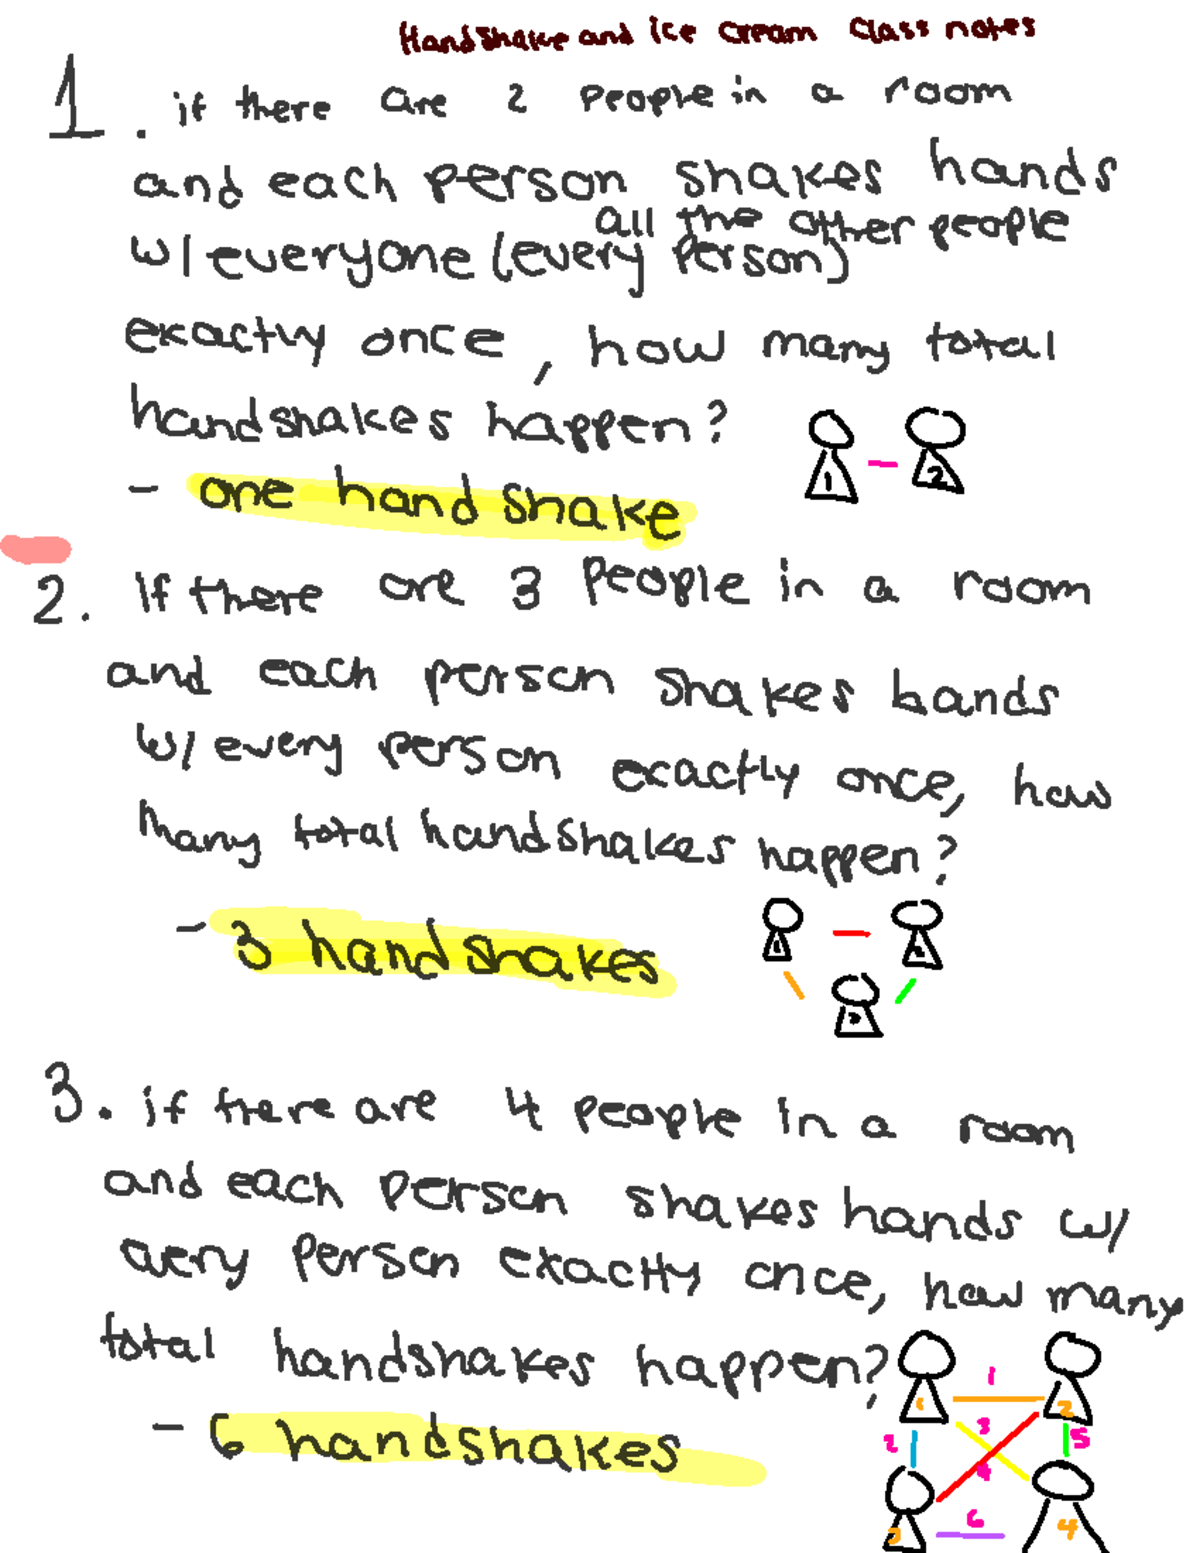 Handshake and Ice cream Class notes
1. if there are 2 people in a room
and each person shakes hands
all the other people
w/ everyone (every person)
exactly once, how many total
handshakes happen?
1 2
- one handshake
2. If there are 3 people in a room
and each person shakes hands
w/ every person exactly once, how
many total handshakes happen?
- 3 handshakes
1 2
3
3. if there are 4 people in a room
and each person shakes hands w/
every person exactly once, how many
total handshakes happen?
1
1 2
- 6 handshakes
2 3 5
4
6
3 4